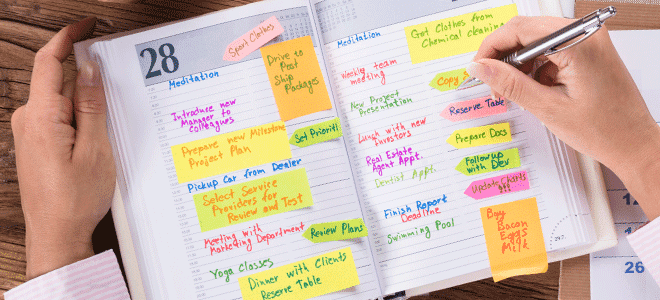 28
Sport Clothes
Meditation
Drive to
Post
Ship
Packages
Introduce new
Manager to
colleagues
Set Prioriti
Prepare new Milestone
Project Plan
Pickup Car from Dealer
Select Service
Providers for
Review and Test
Meeting with
Marketing Department
Review Plans
Yoga Classes
Dinner with Clients
Reserve Table
Meditation
Got Clothes from
Chemical cleaning
Weekly team
meeting
Copy
New Project
Presentation
Reserve Table
Lunch with new
investors
Prepare Docs
Real Estate
Agent Appt.
Followup with
Dev
Dentist Appt.
Update Charts
Finish Report
Deadline
Swimming Pool
Buy
Bacon
Eggs
Milk
12
19
26